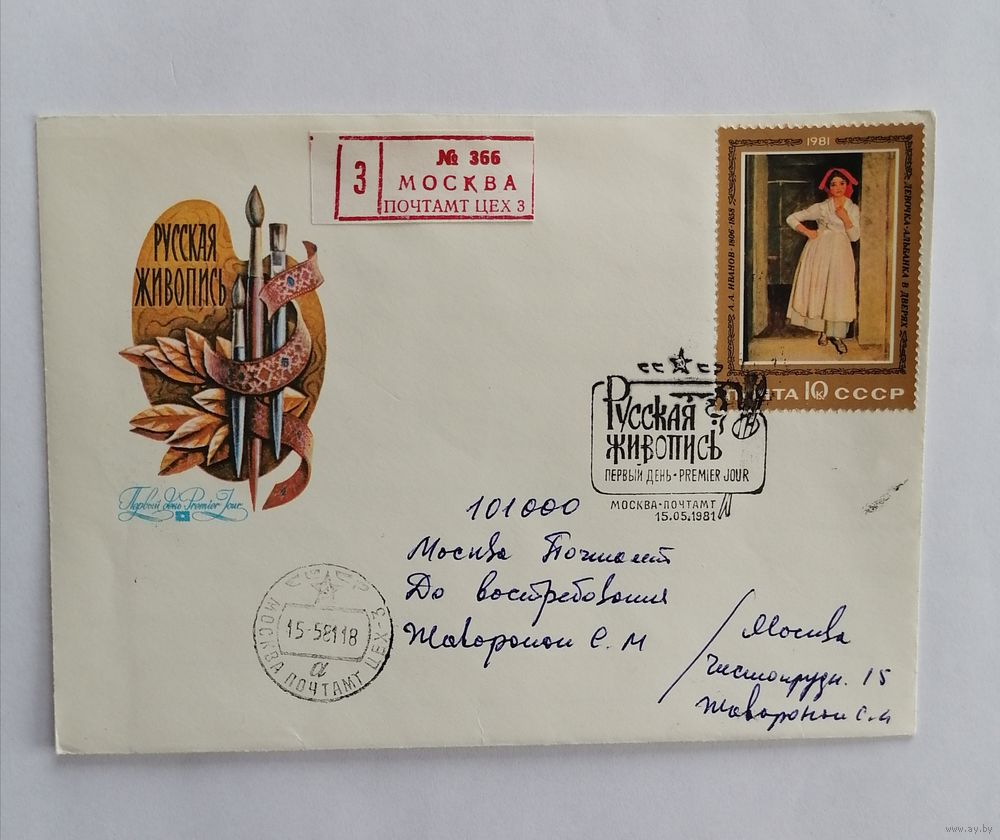 № 366
3
МОСКВА
ПОЧТАМТ ЦЕХ 3
1981
А.А. ИВАНОВ·1806-1858
ДЕВОЧКА-АЛЬБАНКА В ДВЕРЯХ
ПОЧТА 10К СССР
РУССКАЯ
ЖИВОПИСЬ
Первый день Premier Jour
СССР
Русская
живопись
ПЕРВЫЙ ДЕНЬ·PREMIER JOUR
МОСКВА-ПОЧТАМТ
15.05.1981
101000
Москва Почтамт
До востребования
Жаворонки С. М
МОСКВА ПОЧТАМТ ЦЕХ-3
15-58118
а
Москва
Чистопрудн. 15
С.М
www.ay.by